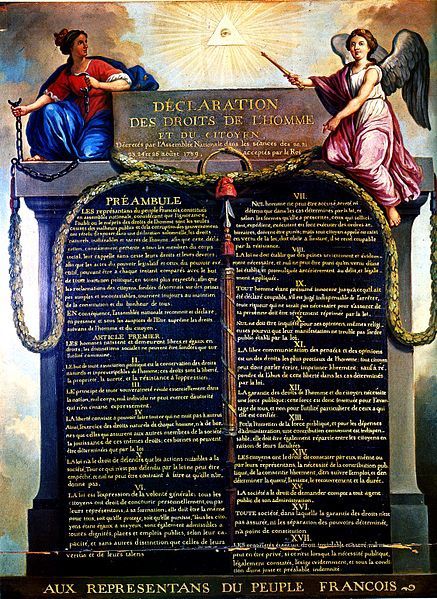 DÉCLARATION
DES DROITS DE L'HOMME
ET DU CITOYEN,
Décrétés par l'Assemblée Nationale dans les séances des 20, 21
23, 24 et 26 août 1789, acceptés par le Roi
PRÉAMBULE
LES représentans du peuple François constitués
en assemblée nationale, considérant que l'ignorance,
l'oubli ou le mépris des droits de l'homme sont les seules
causes des malheurs publics et de la corruption des gouvernemens
ont résolu d'exposer dans une déclaration solemnelle, les droits
naturels, inaliénables et sacrés de l'homme, afin que cette décla-
ration, constamment présente à tous les membres du corps
social, leur rappelle sans cesse leurs droits et leurs devoirs,
afin que les actes du pouvoir législatif et ceux du pouvoir exé-
cutif, pouvant être à chaque instant comparés avec le but
de toute institution politique, en soient plus respectés; afin que
les réclamations des citoyens, fondées désormais sur des princi-
pes simples et incontestables, tournent toujours au maintien
de la constitution et du bonheur de tous.
EN conséquence, l'assemblée nationale reconnoit et déclare
en présence et sous les auspices de l'Etre suprême les droits
suivans de l'homme et du citoyen.
ARTICLE PREMIER.
LES hommes naissent et demeurent libres et égaux en
droits; les distinctions sociales ne peuvent être fondées que sur
l'utilité commune.
II.
LE but de toute association politique est la conservation des droits
naturels et imprescriptibles de l'homme; ces droits sont la liberté,
la propriété, la sureté, et la résistance à l'oppression.
III.
LE principe de toute souveraineté réside essentiellement dans
la nation, nul corps, nul individu ne peut exercer d'autorité
qui n'en émane expressément.
IV.
LA liberté consiste à pouvoir faire tout ce qui ne nuit pas à autrui
Ainsi, l'exercice des droits naturels de chaque homme, n'a de bor-
nes que celles qui assurent aux autres membres de la société
la jouissance de ces mêmes droits; ces bornes ne peuvent
être déterminées que par la loi.
V.
LA loi n'a le droit de défendre que les actions nuisibles à la
société. Tout ce qui n'est pas défendu par la loi ne peut être
empêché, et nul ne peut être contraint à faire ce qu'elle n'or-
donne pas.
VI.
LA loi est l'expression de la volonté générale; tous les
citoyens ont droit de concourir personnellement, ou par
leurs représentans, à sa formation; elle doit être la même
pour tous, soit qu'elle protege, soit qu'elle punisse. Tous les cito-
yens étant égaux à ses yeux, sont également admissibles à
toutes dignités, places et emplois publics, selon leur ca-
pacité, et sans autres distinctions que celles de leurs
vertus et de leurs talens.
VII.
NUL homme ne peut être accusé, arrêté, ni
détenu que dans les cas déterminés par la loi, et
selon les formes qu'elle a prescrites, ceux qui sollici-
tent, expédient, exécutent ou font exécuter des ordres ar-
bitraires, doivent être punis; mais tout citoyen appelé ou saisi
en vertu de la loi, doit obéir à l'instant, il se rend coupable
par la résistance.
VIII.
LA loi ne doit établir que des peines strictement et évidem-
ment nécessaires, et nul ne peut être puni qu'en vertu d'une
loi établie et promulguée antérieurement au délit, et légale-
ment appliquée.
IX.
TOUT homme étant présumé innocent jusqu'à ce qu'il ait
été déclaré coupable, s'il est jugé indispensable de l'arrêter,
toute rigueur qui ne serait pas nécessaire pour s'assurer de
sa personne doit être sévèrement réprimée par la loi.
X.
NUL ne doit être inquiété pour ses opinions, mêmes reli-
gieuses pourvu que leur manifestation ne trouble pas l'ordre
public établi par la loi.
XI.
LA libre communication des pensées et des opinions
est un des droits les plus précieux de l'homme; tout citoyen
peut donc parler, écrire, imprimer librement, sauf à ré-
pondre de l'abus de cette liberté dans les cas déterminés
par la loi.
XII.
LA garantie des droits de l'homme et du citoyen nécessite
une force publique; cette force est donc instituée pour l'avan-
tage de tous, et non pour l'utilité particuliere de ceux à qui
elle est confiée.
XIII.
Pour l'entretien de la force publique, et pour les dépenses
d'administration, une contribution commune est indispen-
sable; elle doit être également répartie entre les citoyens en
raison de leurs facultés.
XIV.
LES citoyens ont le droit de constater par eux même ou
par leurs représentans, la nécessité de la contribution pub-
lique, de la consentir librement, d'en suivre l'emploi, et d'en
déterminer la quotité, l'assiette, le recouvrement et la durée.
XV.
LA société a le droit de demander compte à tout agent
public de son administration.
XVI.
TOUTE société, dans laquelle la garantie des droits n'est
pas assurée, ni la séparation des pouvoirs déterminée,
n'a point de constitution.
XVII.
LES propriétés étant un droit inviolable et sacré, nul ne
peut en être privé, si ce n'est lorsque la nécessité publique,
légalement constatée, l'exige évidemment, et sous la condi-
tion d'une juste et préalable indemnité.
AUX REPRESENTANS DU PEUPLE FRANCOIS